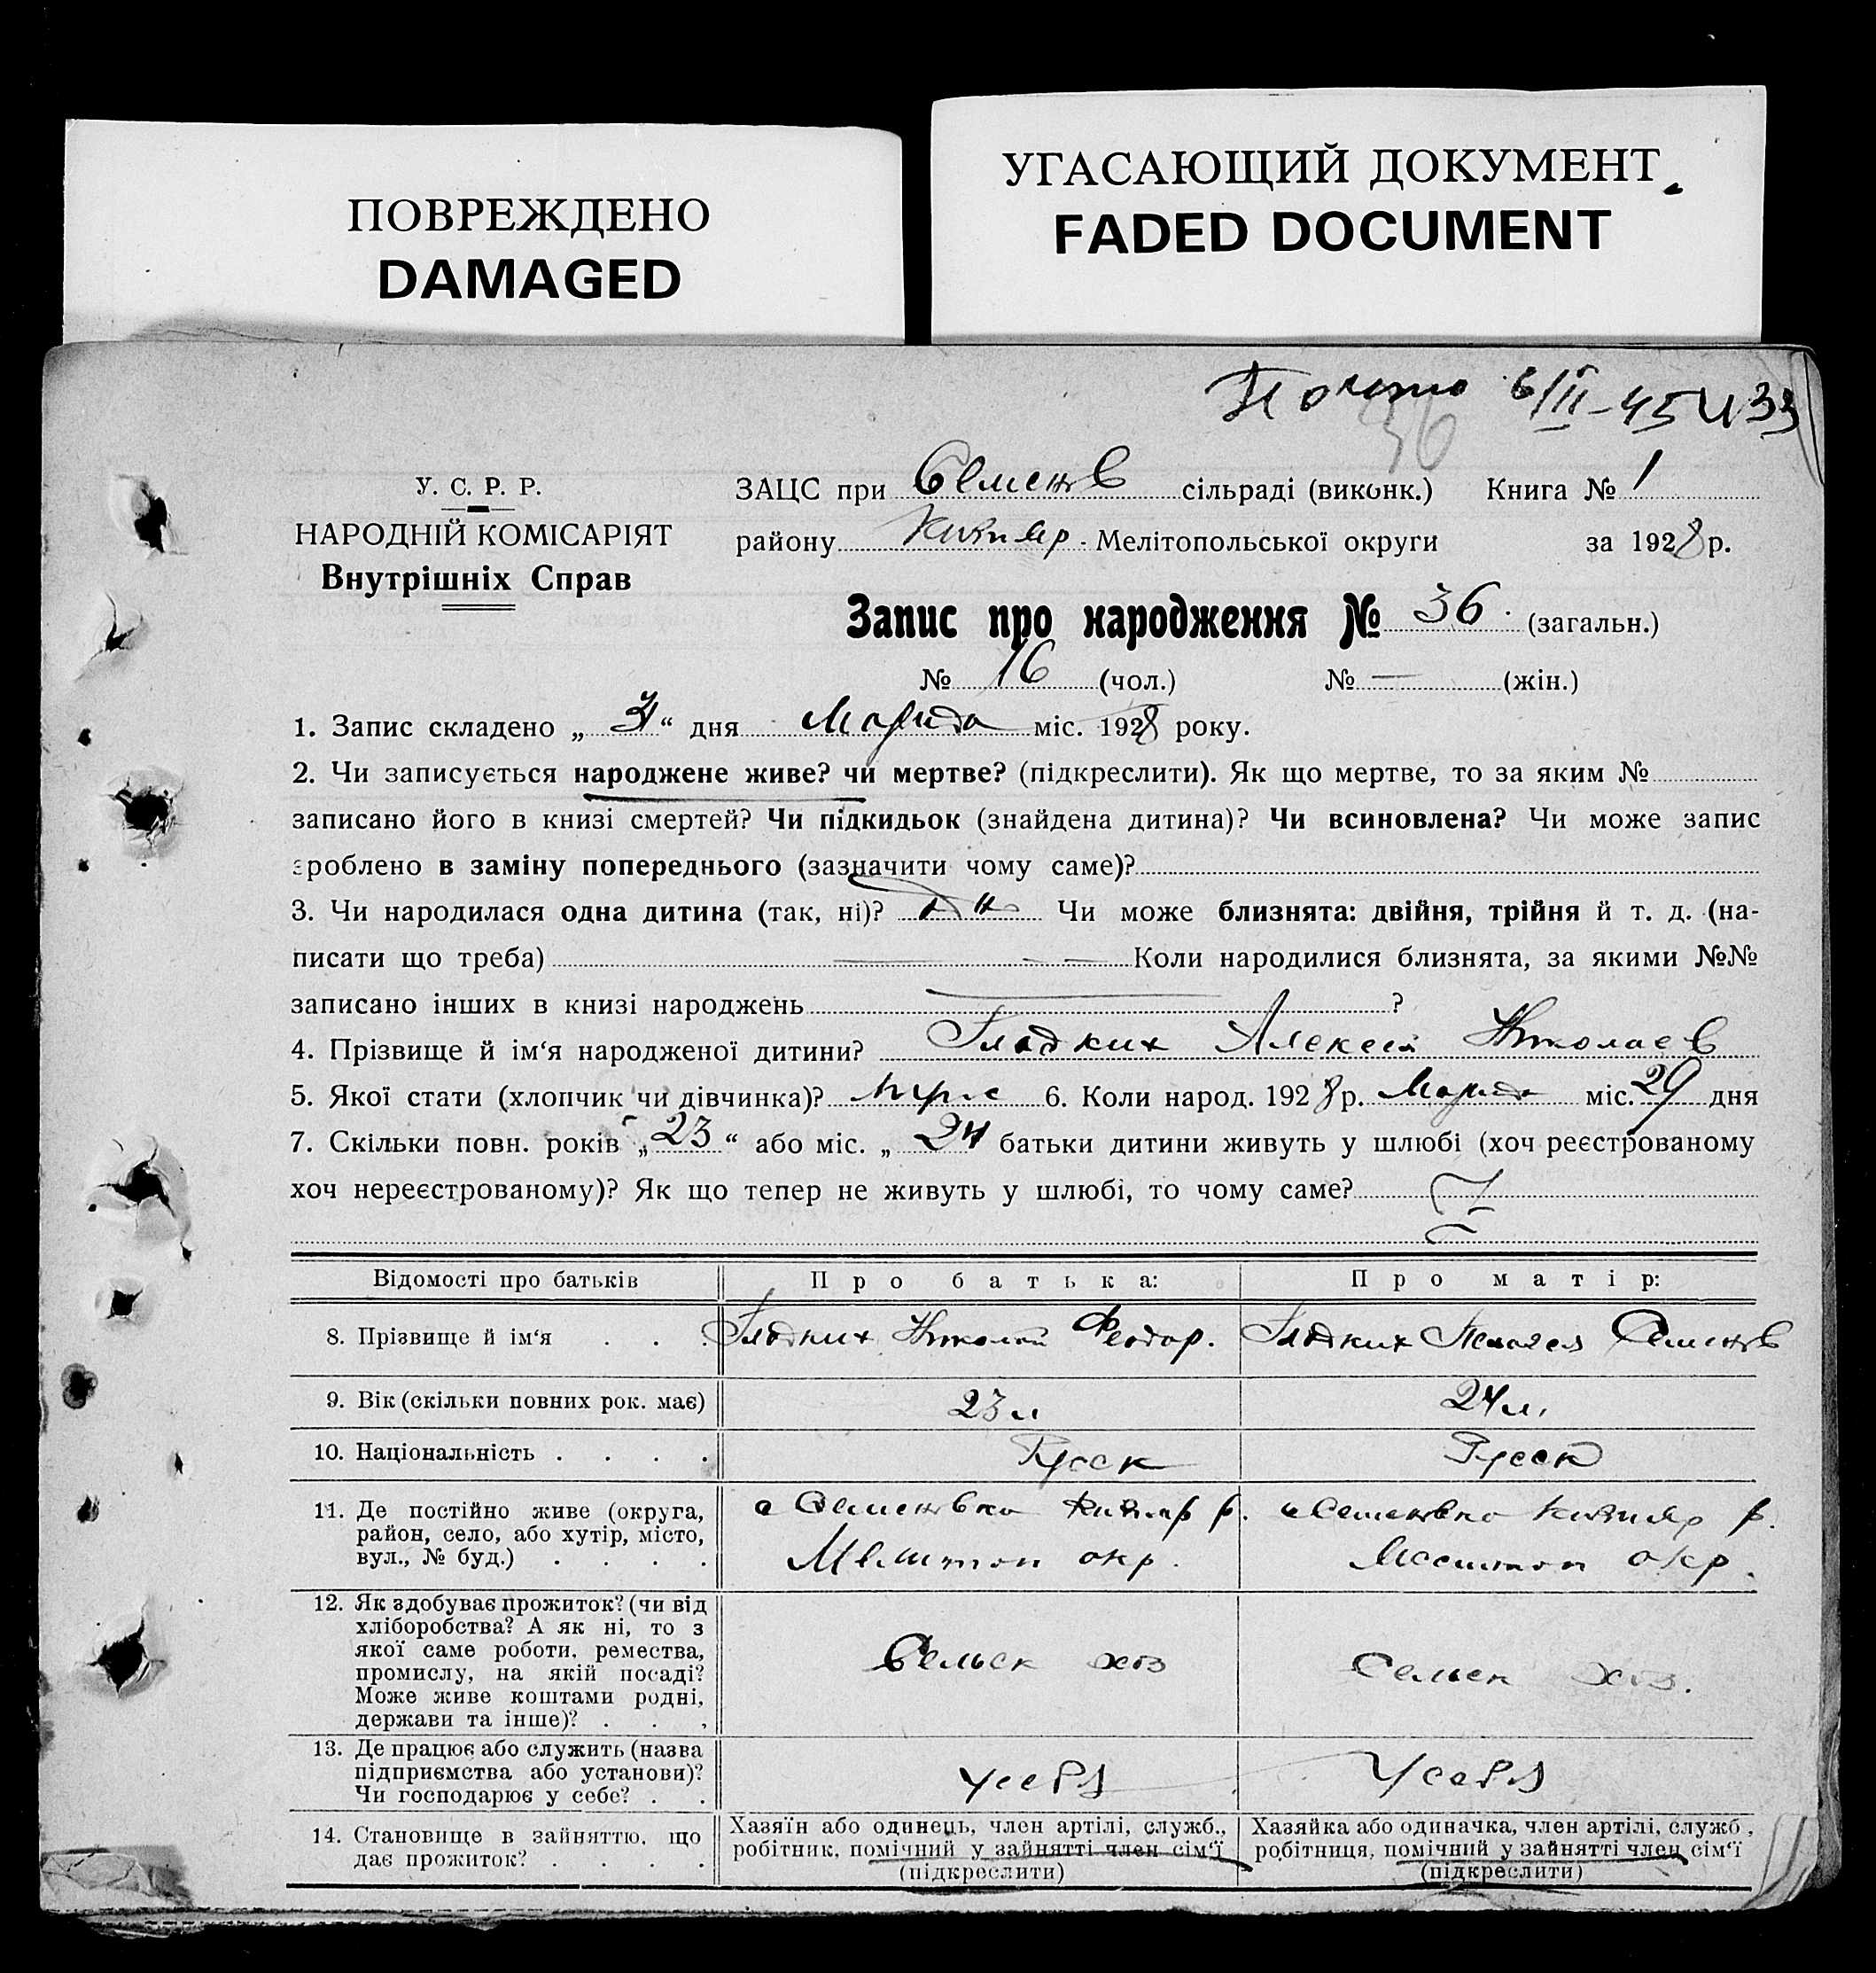 ПОВРЕЖДЕНО
DAMAGED
УГАСАЮЩИЙ ДОКУМЕНТ
FADED DOCUMENT
6/II-45
36
У. С. Р. Р.
НАРОДНІЙ КОМІСАРІЯТ
Внутрішніх Справ
ЗАЦС при Семенов сільраді (виконк.) Книга № 1
району Кизияр. Мелітопольської округи за 1928 р.
Запис про народження № 36. (загальн.)
№ 16 (чол.) № — (жін.)
1. Запис складено „31“ дня Марта міс. 1928 року.
2. Чи записується народжене живе? чи мертве? (підкреслити). Як що мертве, то за яким №
записано його в книзі смертей? Чи підкидьок (знайдена дитина)? Чи всиновлена? Чи може запис
зроблено в заміну попереднього (зазначити чому саме)?
3. Чи народилася одна дитина (так, ні)? Чи може близнята: двійня, трійня й т. д. (на-
писати що треба) Коли народилися близнята, за якими №№
записано інших в книзі народжень ?
4. Прізвище й ім‘я народженої дитини? Гладких Алексей Николаев
5. Якої стати (хлопчик чи дівчинка)? муж 6. Коли народ. 1928 р. Марта міс. 29 дня
7. Скільки повн. років „23“ або міс. „24 батьки дитини живуть у шлюбі (хоч реєстрованому
хоч нереєстрованому)? Як що тепер не живуть у шлюбі, то чому саме?
Відомості про батьків Про батька: Про матір:
8. Прізвище й ім‘я . . . Гладких Николай Феодор. Гладких Пелагея Семенов
9. Вік (скільки повних рок. має) 23 л 24 л.
10. Національність . . . . Русск Русск
11. Де постійно живе (округа, с Семеновка Кизияр р. с Семеновка Кизияр р.
район, село, або хутір, місто,
вул., № буд.) . . . . Мелитоп окр. Мелитоп окр.
12. Як здобуває прожиток? (чи від
хліборобства? А як ні, то з
якої саме роботи, ремества,
промислу, на якій посаді? Сельск хоз Сельск хоз.
Може живе коштами родні,
держави та інше)? . . .
13. Де працює або служить (назва
підприємства або установи)? У себя У себя
Чи господарює у себе? . .
14. Становище в зайняттю, що Хазяїн або одинець, член артілі, служб., Хазяйка або одиначка, член артілі, служб.,
дає прожиток? . . . . робітник, помічний у зайнятті член сім‘ї робітниця, помічний у зайнятті член сім‘ї
(підкреслити) (підкреслити)